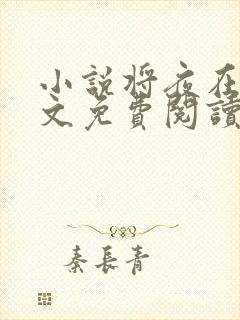 小説将夜在
文免費閱讀
秦長青